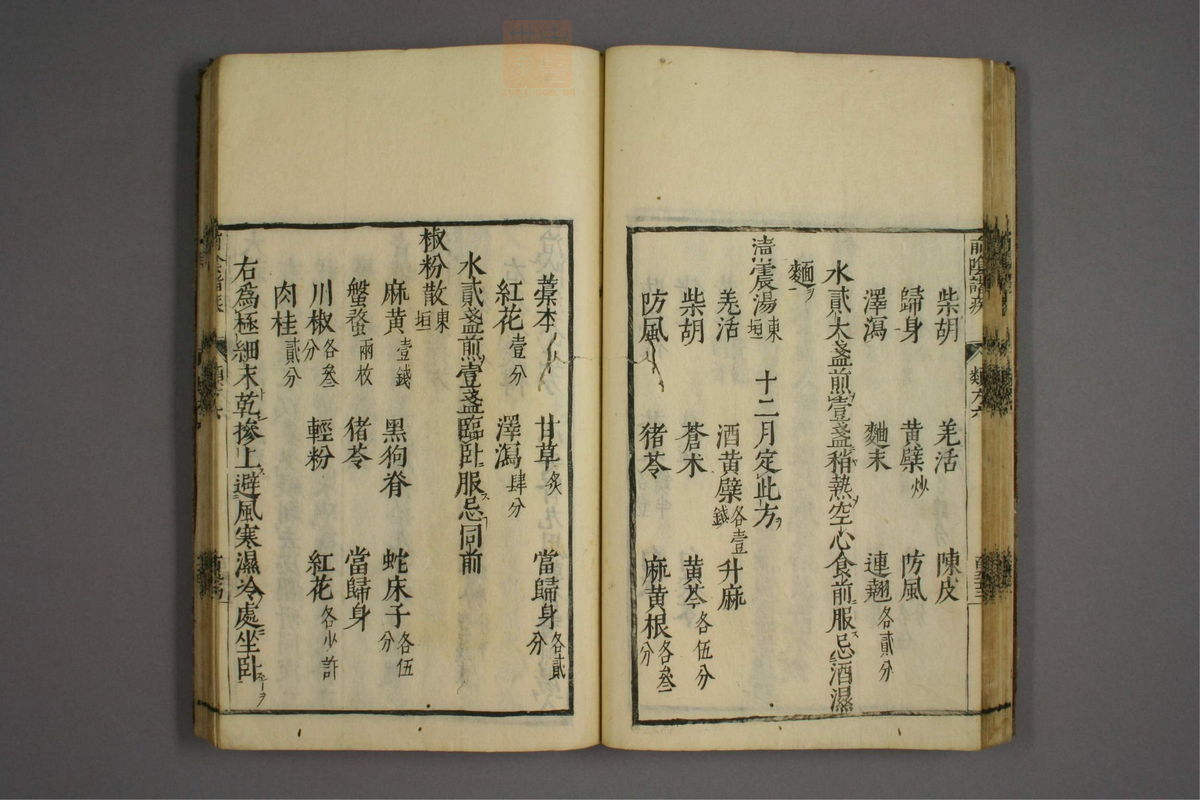 柴胡 羌活 陳皮
歸身 黃蘗炒 防風
澤瀉 麯末 連翹各貳分
水貳大盞煎壹盞稍熱空心食前服忌酒濕
麵
清震湯東垣 十二月定此方
羌活 酒黃蘗各壹錢 升麻
柴胡 蒼朮 黃芩各伍分
防風 猪苓 麻黃根各叁分
藁本 甘草炙 當歸身各貳分
紅花壹分 澤瀉肆分
水貳盞煎壹盞臨臥服忌同前
椒粉散東垣
麻黃壹錢 黑狗脊 蛇床子各伍分
蟹螯兩枚 猪苓 當歸身
川椒各叁分 輕粉 紅花各少許
肉桂貳分
右爲極細末乾摻上避風寒濕冷處坐臥